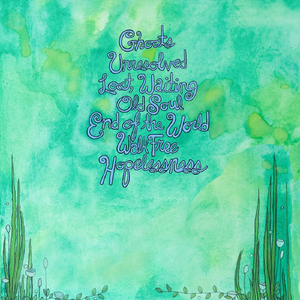 Ghosts
Unresolved
Lost, Waiting
Old Soul
End of the World
Walk Free
Hopelessness